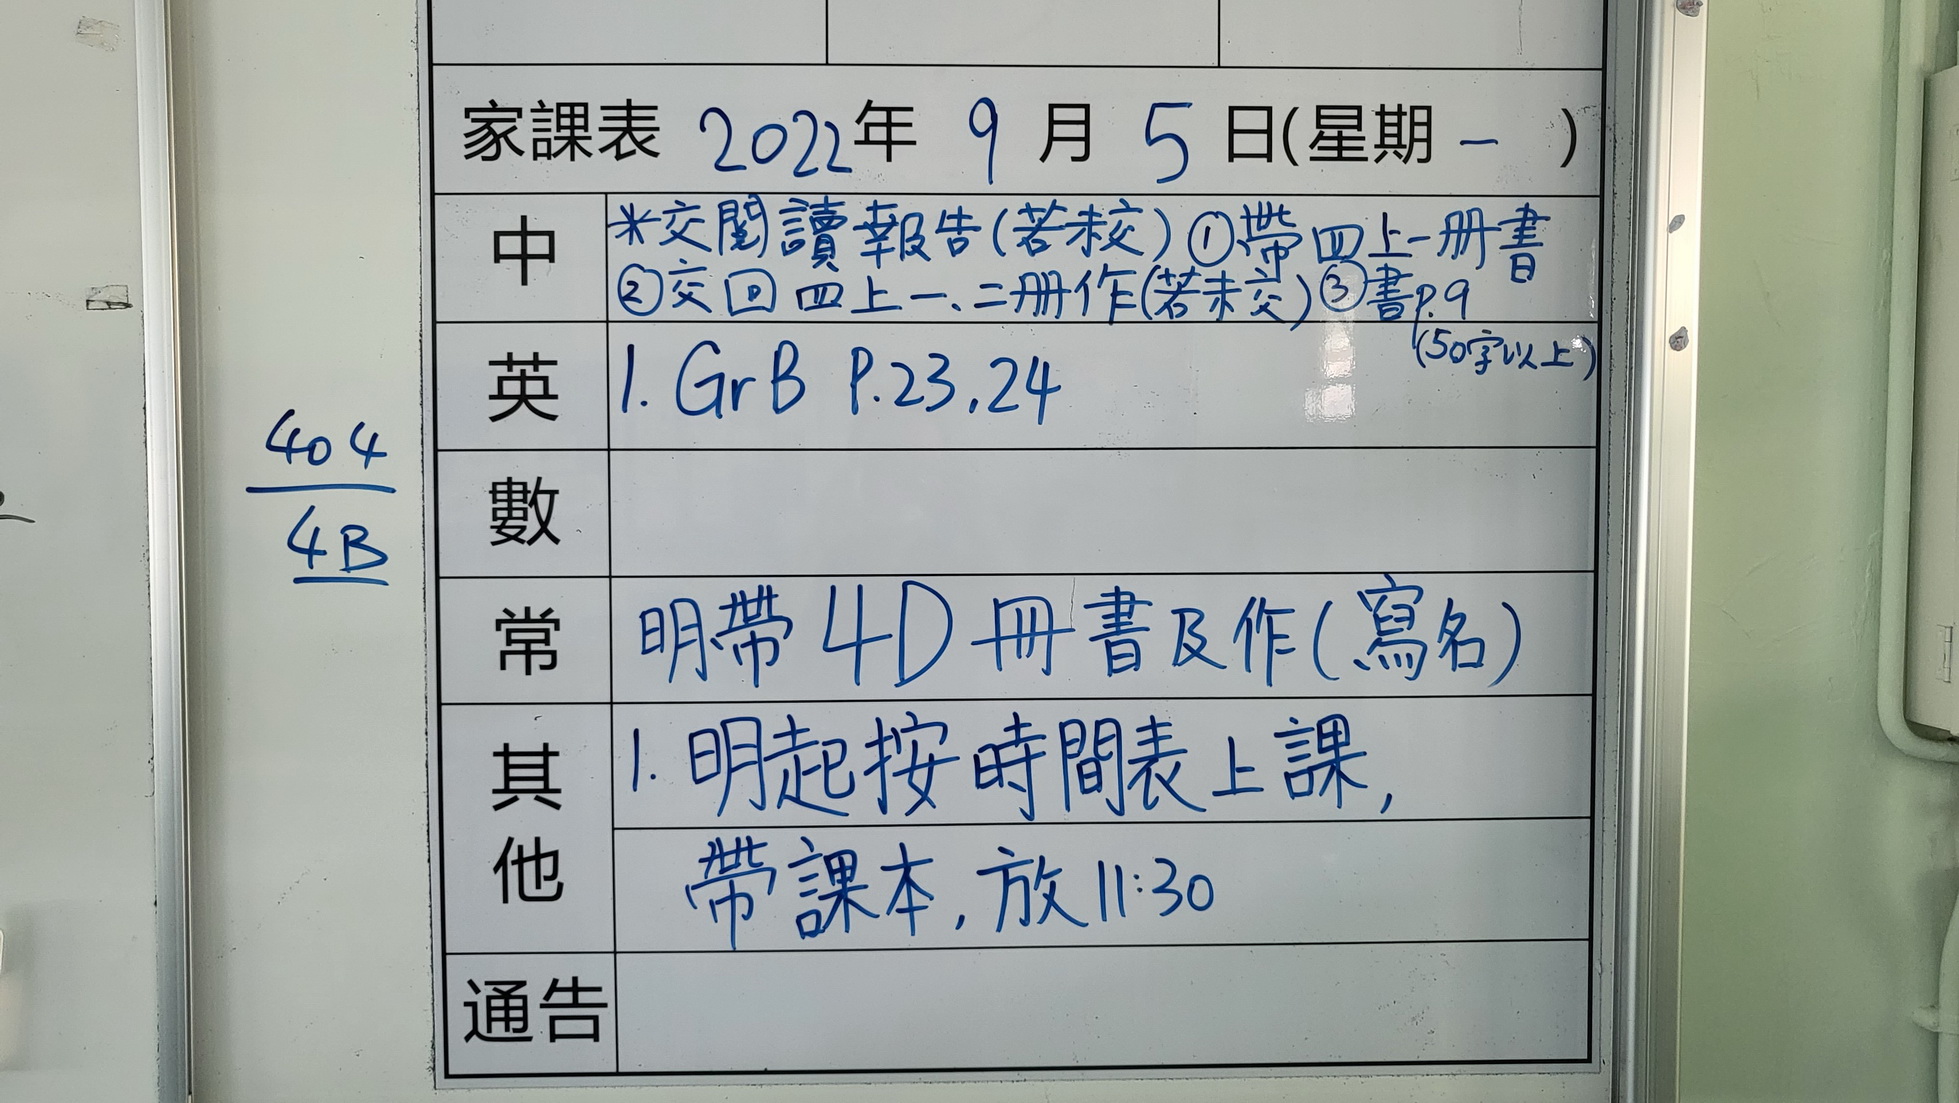 家課表 2022年 9月 5日(星期一 )
中
*交閱讀報告(若未交)①帶四上一册書
②交回四上一、二册作(若未交)③書p.9
(50字以上)
英
1. GrB P.23,24
數
常
明帶4D冊書及作(寫名)
其他
1. 明起按時間表上課,
帶課本,放11:30
通告
404
4B